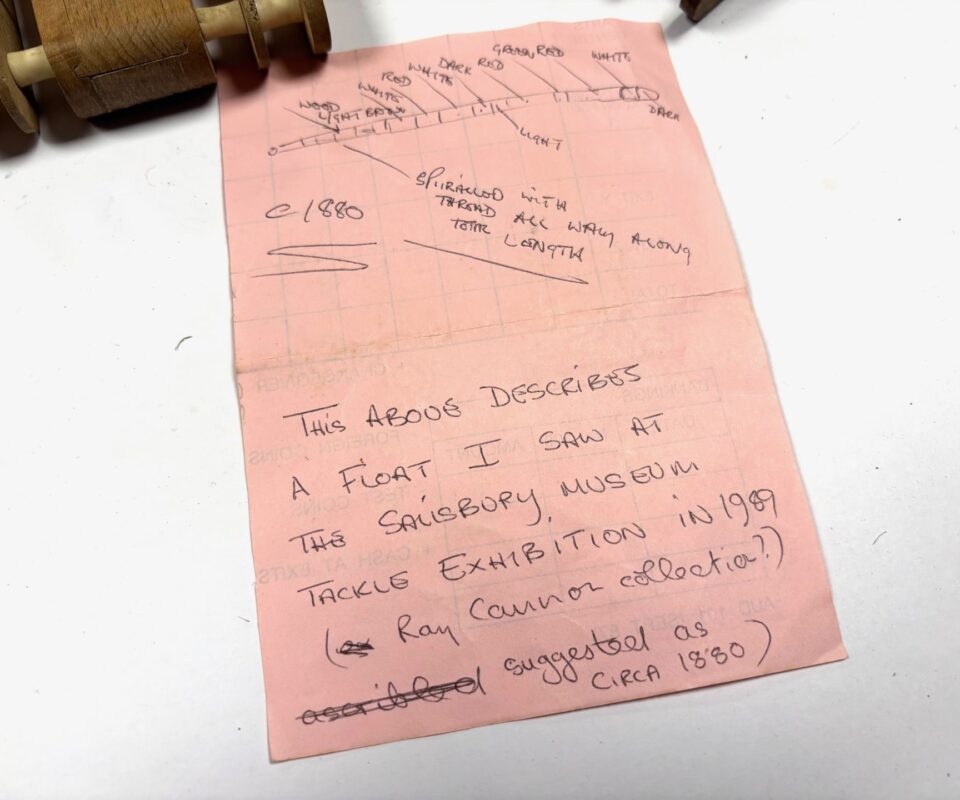 WOOD
LIGHT BROWN
WHITE
RED
WHITE
DARK RED
GREEN RED
WHITE
DARK
LIGHT
SPIRALLED WITH
THREAD ALL WAY ALONG
LENGTH
C 1880
THIS ABOVE DESCRIBES
A FLOAT I SAW AT
THE SALISBURY MUSEUM
TACKLE EXHIBITION IN 1989
( Ray Cannon collection?)
ascribed suggested as
CIRCA 1880)
FOREIGN COINS
TEST COINS
+ CASH AT EXITS
BANKINGS
AMOUNT